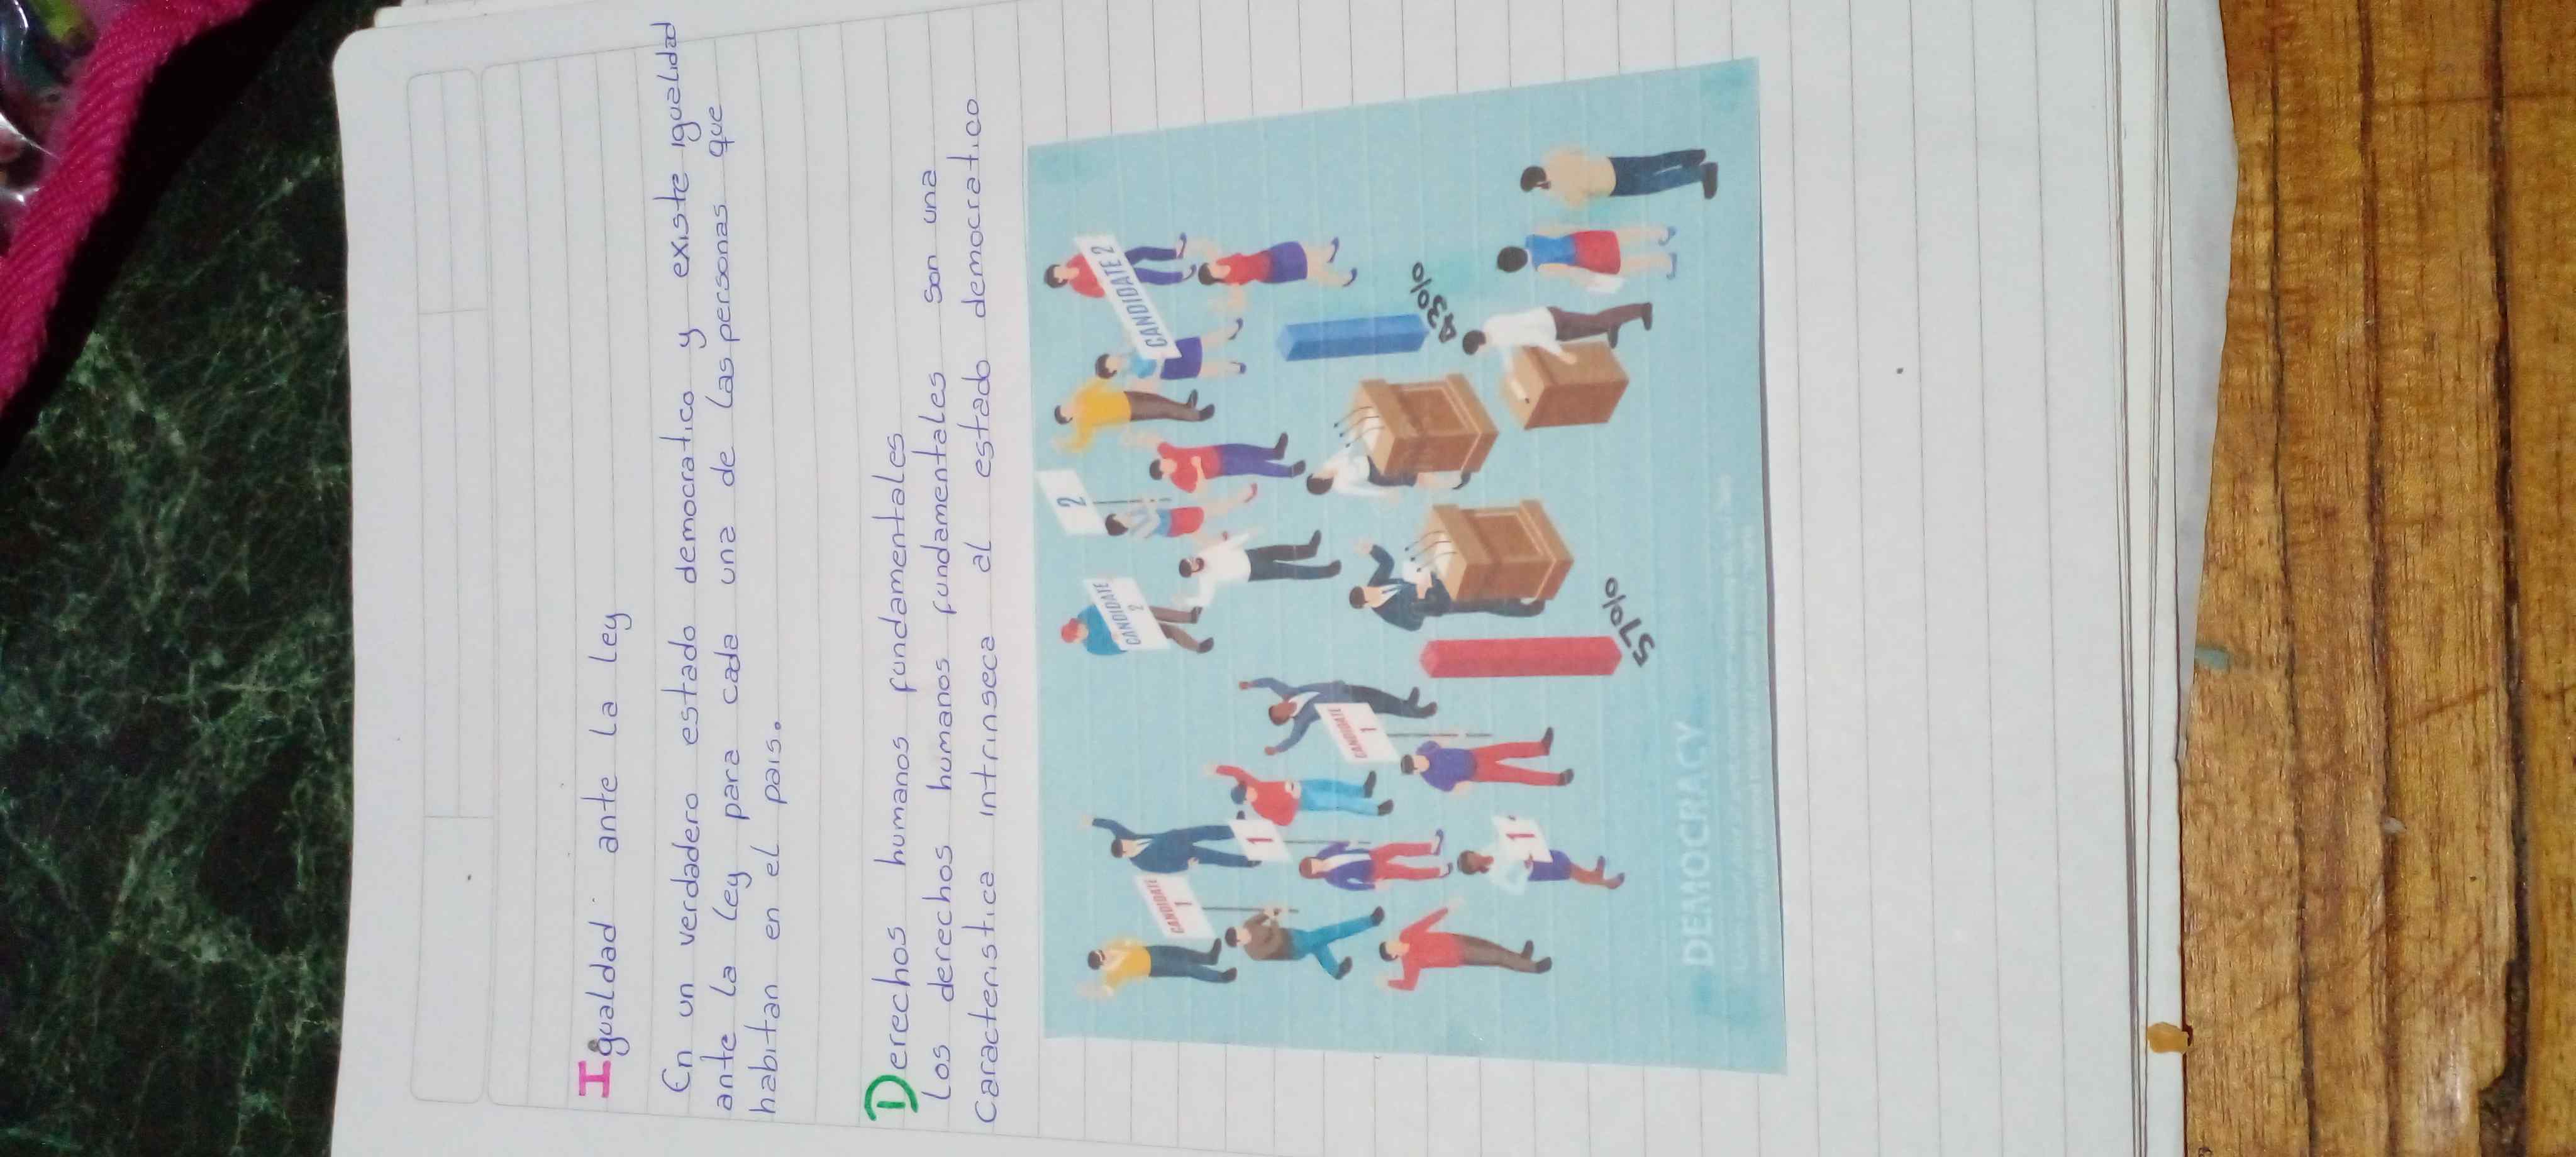 Igualdad ante la ley
En un verdadero estado democratico y existe igualidad
ante la ley para cada una de las personas que
habitan en el pais.
Derechos humanos fundamentales
Los derechos humanos fundamentales son una
Caracteristica intrinseca al estado democratico
CANDIDATE 2
2
CANDIDATE
2
CANDIDATE
1
1
CANDIDATE
1
1
43%
57%
DEMOCRACY